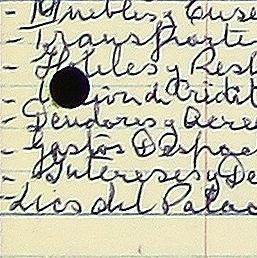 Muebles y Ense
- Transporte
- Hoteles y Rest
- de Crédit
- Deudores y Acree
- Gastos D Espac
- Intereses y De
- Lics del Palac